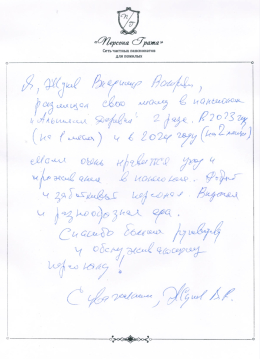 "Персона Гранж"
Сеть частных пансионатов
для пожилых
Я, Жуков Владимир
размещал свою маму в пансионат
2 раза. В 2023 году
(на 1 месяц) и в 2024 году (на 2 месяца)
Маме очень нравится уход и
проживание в пансионате. Добрый
и заботливый персонал. Вкусная
и разнообразная еда.
Спасибо большое руководству
и обслуживающему
персоналу!
С уважением, Жуков В.Р.